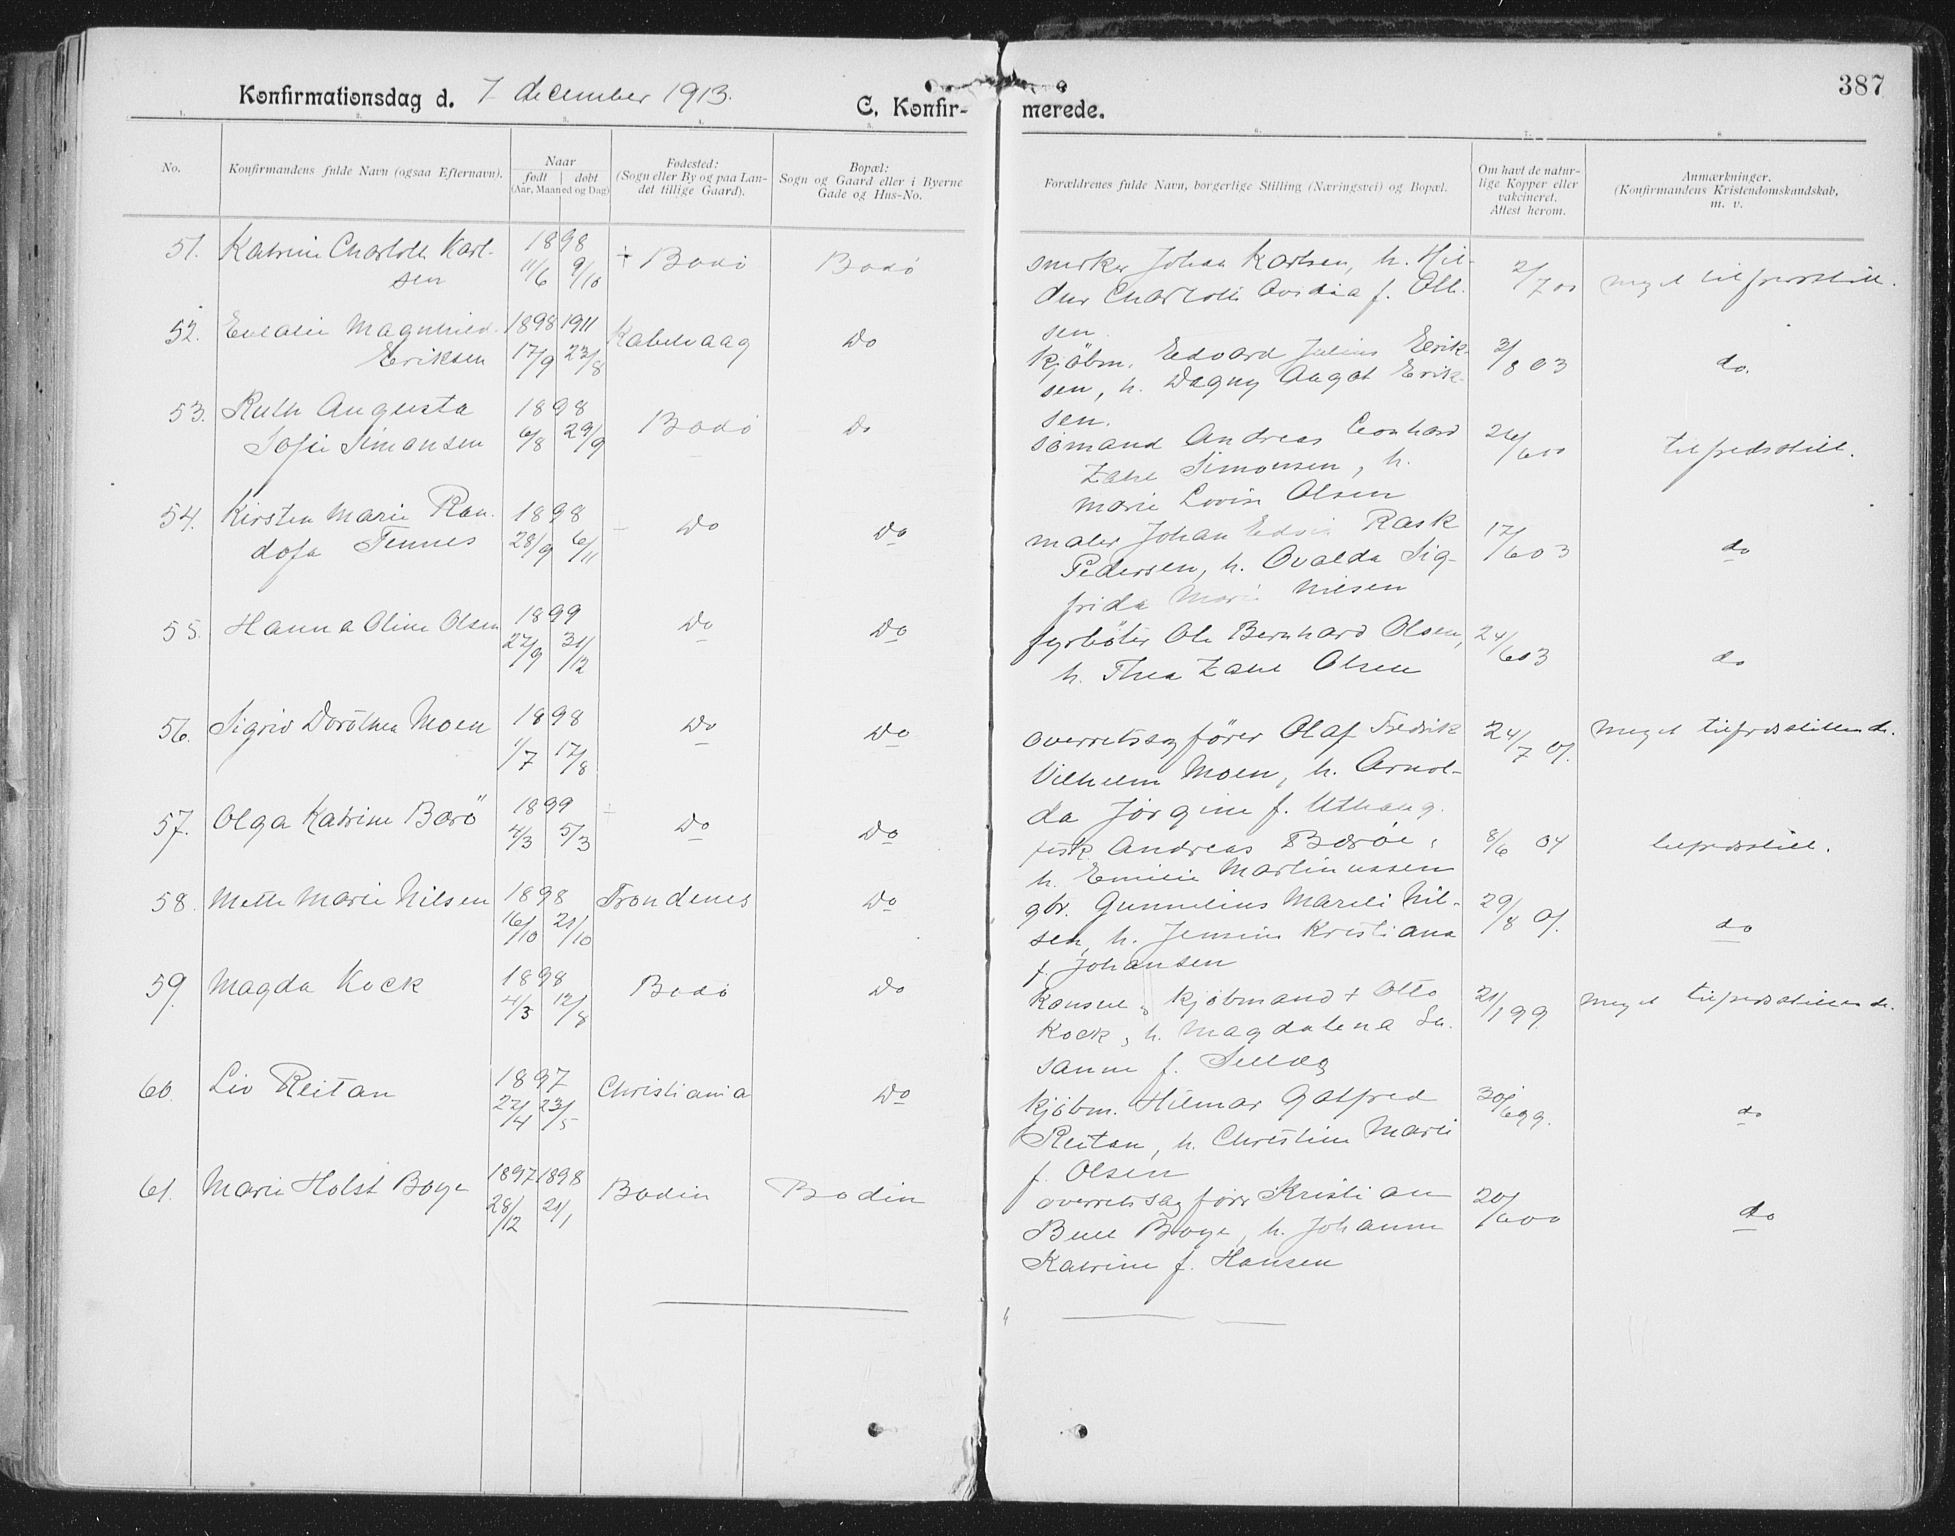 387
Konfirmationsdag d. 7 december 1913.
C. Konfirmerede.
1. 2. 3. 4. 5. 6. 7. 8.
No.
Konfirmandens fulde Navn (ogsaa Efternavn).
Naar
født | døbt
(Aar, Maaned og Dag)
Fødested:
(Sogn eller By og paa Lan-
det tillige Gaard).
Bopæl:
Sogn og Gaard eller i Byerne
Gade og Hus-No.
Forældrenes fulde Navn, borgerlige Stilling (Næringsvei) og Bopæl.
Om havt de natur-
lige Kopper eller
vakcineret.
Attest herom.
Anmærkninger.
(Konfirmandens Kristendomskundskab,
m. v.
51. Katrine Charlotte Karl-
sen
1898
11/6 9/10
Bodø
Bodø
snerker Johan Karlsen, h. Hil-
dur Charlotte Ovidia f. Oll-
sen.
2/7 00
meget tilfredsstill.
52. Eulalie Magnhild
Eriksen
1898 1911
17/9 23/8
Kabelvaag
do
kjöbm. Edvard Julius Erik-
sen, h. Dagny Aagot Erik-
sen.
3/8 03
do.
53. Ruth Augusta
Sofie Simonsen
1898
6/8 29/9
Bodø
do
sömand Andreas Leonhard
Zahl Simonsen, h.
Marie Lovise Olsen
26/6 00
tilfredsstill.
54. Kirsten Marie Ran-
dofa Tennes
1898
28/9 6/11
do
do
maler Johan Edvin Rask
Pedersen, h. Ovalda Sig-
frida Marie Nilsen
17/6 03
do
55. Hanna Oline Olsen
1899
27/9 31/12
do
do
fyrböter Ole Bernhard Olsen,
h. Thea Zahl Olsen
24/6 03
do
56. Sigrid Dorothea Moen
1898
1/7 17/8
do
do
overretssagförer Olaf Fredrik
Vilhelm Moen, h. Arnol-
da Jørgine f. Uthaug.
24/7 01.
meget tilfredsstillende.
57. Olga Katrine Barö
1899
4/3 5/3
do
do
fisk. Andreas Barøe,
h. Emilie Martinussen
8/6 04
tilfredsstill.
58. Mette Marie Nilsen
1898
16/10 21/10
Trondenes
do
gbr. Gunnelius Mareli Nil-
sen, h. Jensine Kristiana
f. Johansen
29/8 01.
do
59. Magda Kock
1898
4/3 12/8
Bodø
do
konsul, kjøbmand + Otto
Kock, h. Magdalena Su-
sanne f.
21/1 99
meget tilfredsstillende.
60. Liv Reitan
1897
27/4 23/5
Christiania
do
kjöbm. Hilmar Gotfred
Reitan, h. Christine Marie
f. Olsen
30/6 99.
do
61. Marie Holst Boye
1897 1898
28/12 21/1
Bodin
Bodin
overretssagförer Kristian
Bull Boye, h. Johanne
Katrine f. Hansen
20/6 00
do